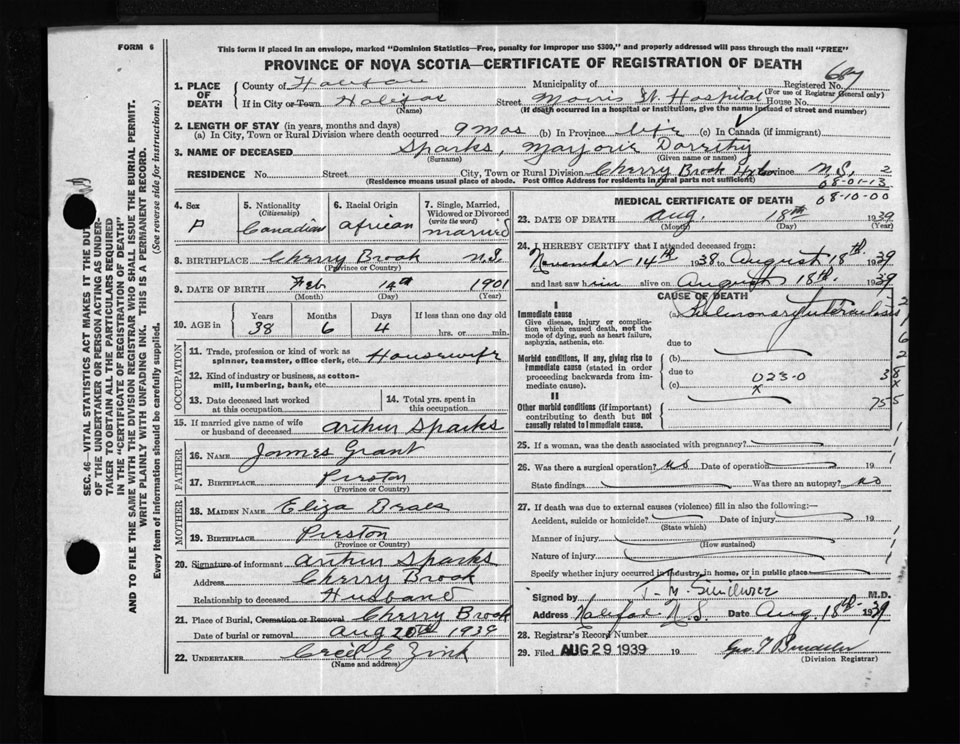 FORM 6
This form if placed in an envelope, marked "Dominion Statistics—Free, penalty for improper use $300," and properly addressed will pass through the mail "FREE"
PROVINCE OF NOVA SCOTIA—CERTIFICATE OF REGISTRATION OF DEATH
1. PLACE OF DEATH
County of Halifax Municipality of Registered No.
(For use of Registrar General only)
If in City or Town Halifax Street Morris St. Hospital House No.
(Name) (If death occurred in a hospital or institution, give the name instead of street and number)
2. LENGTH OF STAY (in years, months and days)
(a) In City, Town or Rural Division where death occurred 9 mos (b) In Province life (c) In Canada (if immigrant)
3. NAME OF DECEASED Sparks, Marjorie Dorothy
(Surname) (Given name or names)
RESIDENCE No. Street City, Town or Rural Division Cherry Brook Hx Province N.S. 2
(Residence means usual place of abode. Post Office Address for residents in rural parts not sufficient)
08-01-13
08-10-00
4. Sex
F
5. Nationality
(Citizenship)
Canadian
6. Racial Origin
African
7. Single, Married, Widowed or Divorced
(write the word)
married
8. BIRTHPLACE Cherry Brook N.S.
(Province or Country)
9. DATE OF BIRTH Feb 14th 1901
(Month) (Day) (Year)
10. AGE in
Years Months Days If less than one day old
38 6 4 hrs. or min.
OCCUPATION
11. Trade, profession or kind of work as spinner, teamster, office clerk, etc. Housewife
12. Kind of industry or business, as cotton-mill, lumbering, bank, etc.
13. Date deceased last worked at this occupation
14. Total yrs. spent in this occupation
15. If married give name of wife or husband of deceased Arthur Sparks
FATHER
16. NAME James Grant
17. BIRTHPLACE Preston
(Province or Country)
MOTHER
18. MAIDEN NAME Eliza
19. BIRTHPLACE Preston
(Province or Country)
20. Signature of informant Arthur Sparks
Address Cherry Brook
Relationship to deceased Husband
21. Place of Burial, Cremation or Removal Cherry Brook
Date of burial or removal Aug 20th 1939
22. UNDERTAKER Cecil E Zink
(Name and address)
MEDICAL CERTIFICATE OF DEATH
23. DATE OF DEATH Aug. 18th 1939
(Month) (Day) (Year)
24. I HEREBY CERTIFY that I attended deceased from:
November 14th 1938 to August 18th 1939
and last saw him alive on August 18th 1939
CAUSE OF DEATH
I
Immediate cause
Give disease, injury or complication which caused death, not the mode of dying, such as heart failure, asphyxia, asthenia, etc.
(a) Pulmonary Tuberculosis
due to
Morbid conditions, if any, giving rise to immediate cause (stated in order proceeding backwards from immediate cause).
(b)
due to
(c) 023-0
X
II
Other morbid conditions (if important) contributing to death but not causally related to Immediate cause.
25. If a woman, was the death associated with pregnancy?
26. Was there a surgical operation? no Date of operation 19
State findings Was there an autopsy? no
27. If death was due to external causes (violence) fill in also the following:—
Accident, suicide or homicide? Date of injury 19
(State which)
Manner of injury
(How sustained)
Nature of injury
Specify whether injury occurred in industry, in home, or in public place
Signed by M.D.
Address Halifax N.S. Date Aug 18th 1939
28. Registrar's Record Number
29. Filed AUG 29 1939 19
(Division Registrar)
SEC. 46—VITAL STATISTICS ACT MAKES IT THE DUTY OF THE UNDERTAKER OR PERSON ACTING AS UNDERTAKER TO OBTAIN ALL THE PARTICULARS REQUIRED IN THE "CERTIFICATE OF REGISTRATION OF DEATH"
AND TO FILE THE SAME WITH THE DIVISION REGISTRAR WHO SHALL ISSUE THE BURIAL PERMIT.
WRITE PLAINLY WITH UNFADING INK. THIS IS A PERMANENT RECORD.
Every item of information should be carefully supplied. (See reverse side for instructions.)